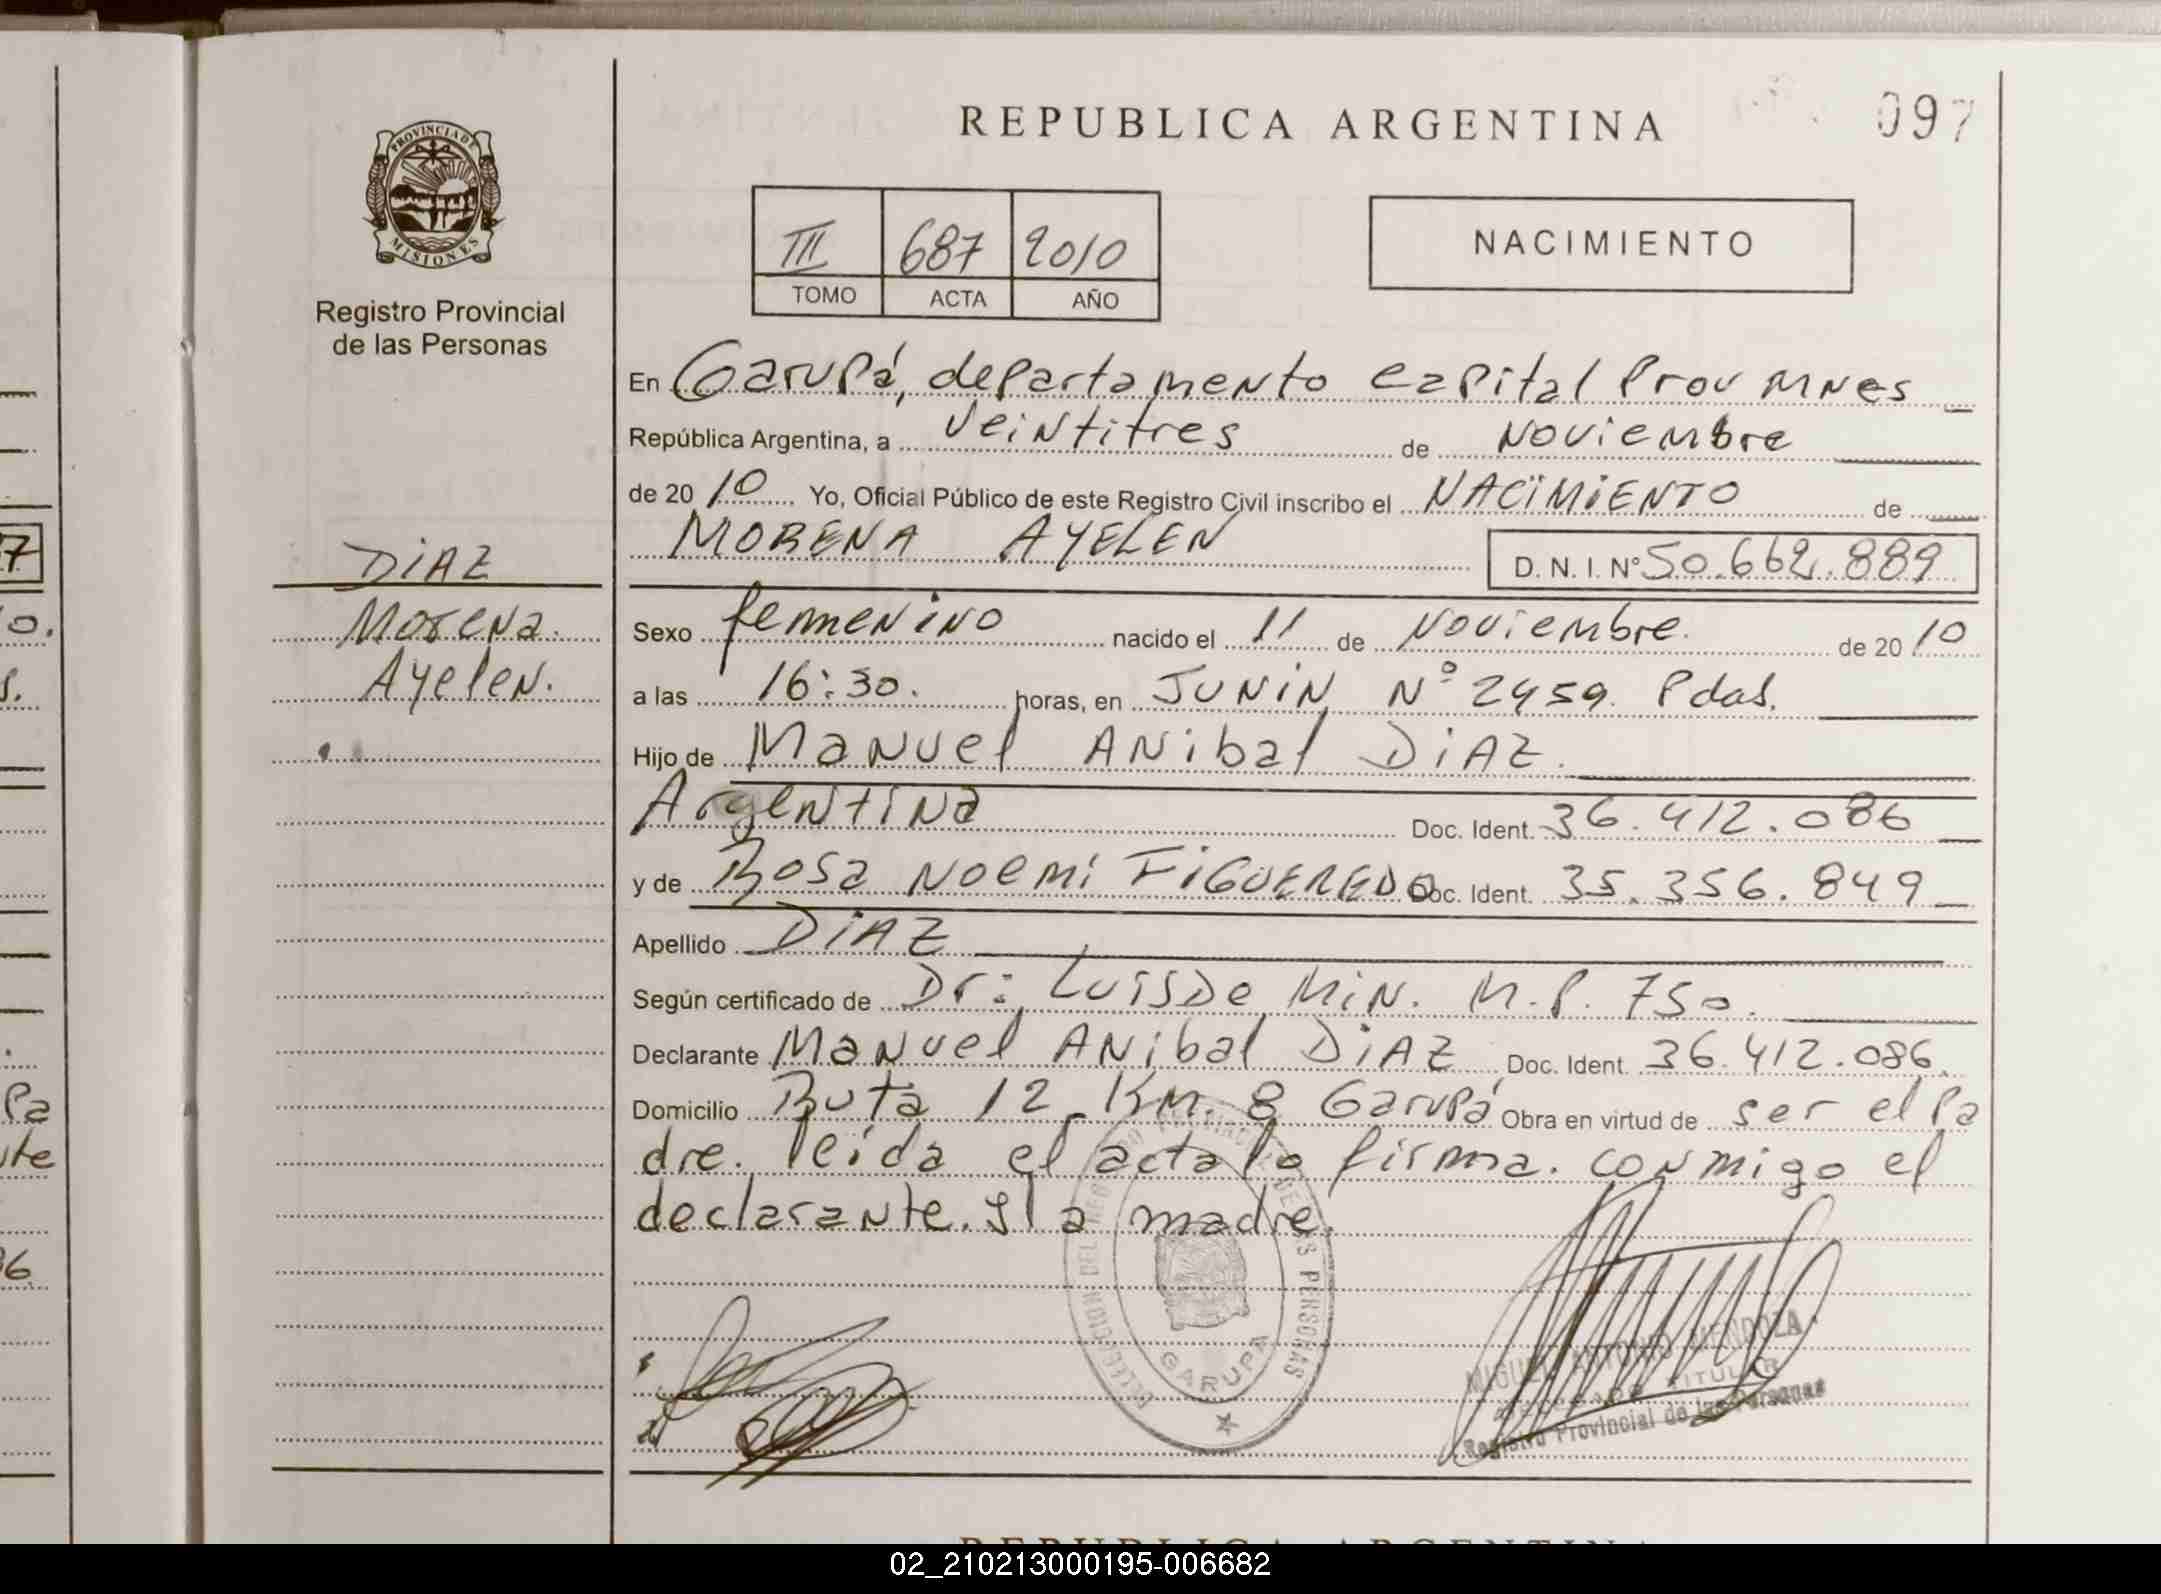 PROVINCIA DE
MISIONES
Registro Provincial
de las Personas
DiAZ
Morena.
Ayelen.
REPUBLICA ARGENTINA
097
III 687 2010
TOMO ACTA AÑO
NACIMIENTO
En Garupá, departamento capital Prov Mnes
República Argentina, a veintitres de Noviembre
de 2010 Yo, Oficial Público de este Registro Civil inscribo el NACIMIENTO de
MORENA AYELEN D. N. I. Nº 50.662.889
Sexo femenino nacido el 11 de Noviembre. de 2010
a las 16:30. horas, en JUNIN Nº 2459. Pdas.
Hijo de Manuel Anibal DiAZ.
Argentina Doc. Ident. 36.412.086
y de Rosa Noemi FiGUEREDO Doc. Ident. 35.356.849
Apellido DiAZ
Según certificado de Dr: Luis De Min. M.P. 750.
Declarante Manuel Anibal DiAZ Doc. Ident. 36.412.086.
Domicilio Ruta 12 Km. 8 Garupá Obra en virtud de ser el Pa
dre. leida el acta lo firma. conmigo el
declarante. y la madre.
DELEGACION DEL REGISTRO PROVINCIAL DE LAS PERSONAS
GARUPA
MIGUEL ANTONIO MENDOZA
DELEGADO TITULAR
Registro Provincial de las Personas
REPUBLICA ARGENTINA
02_210213000195-006682